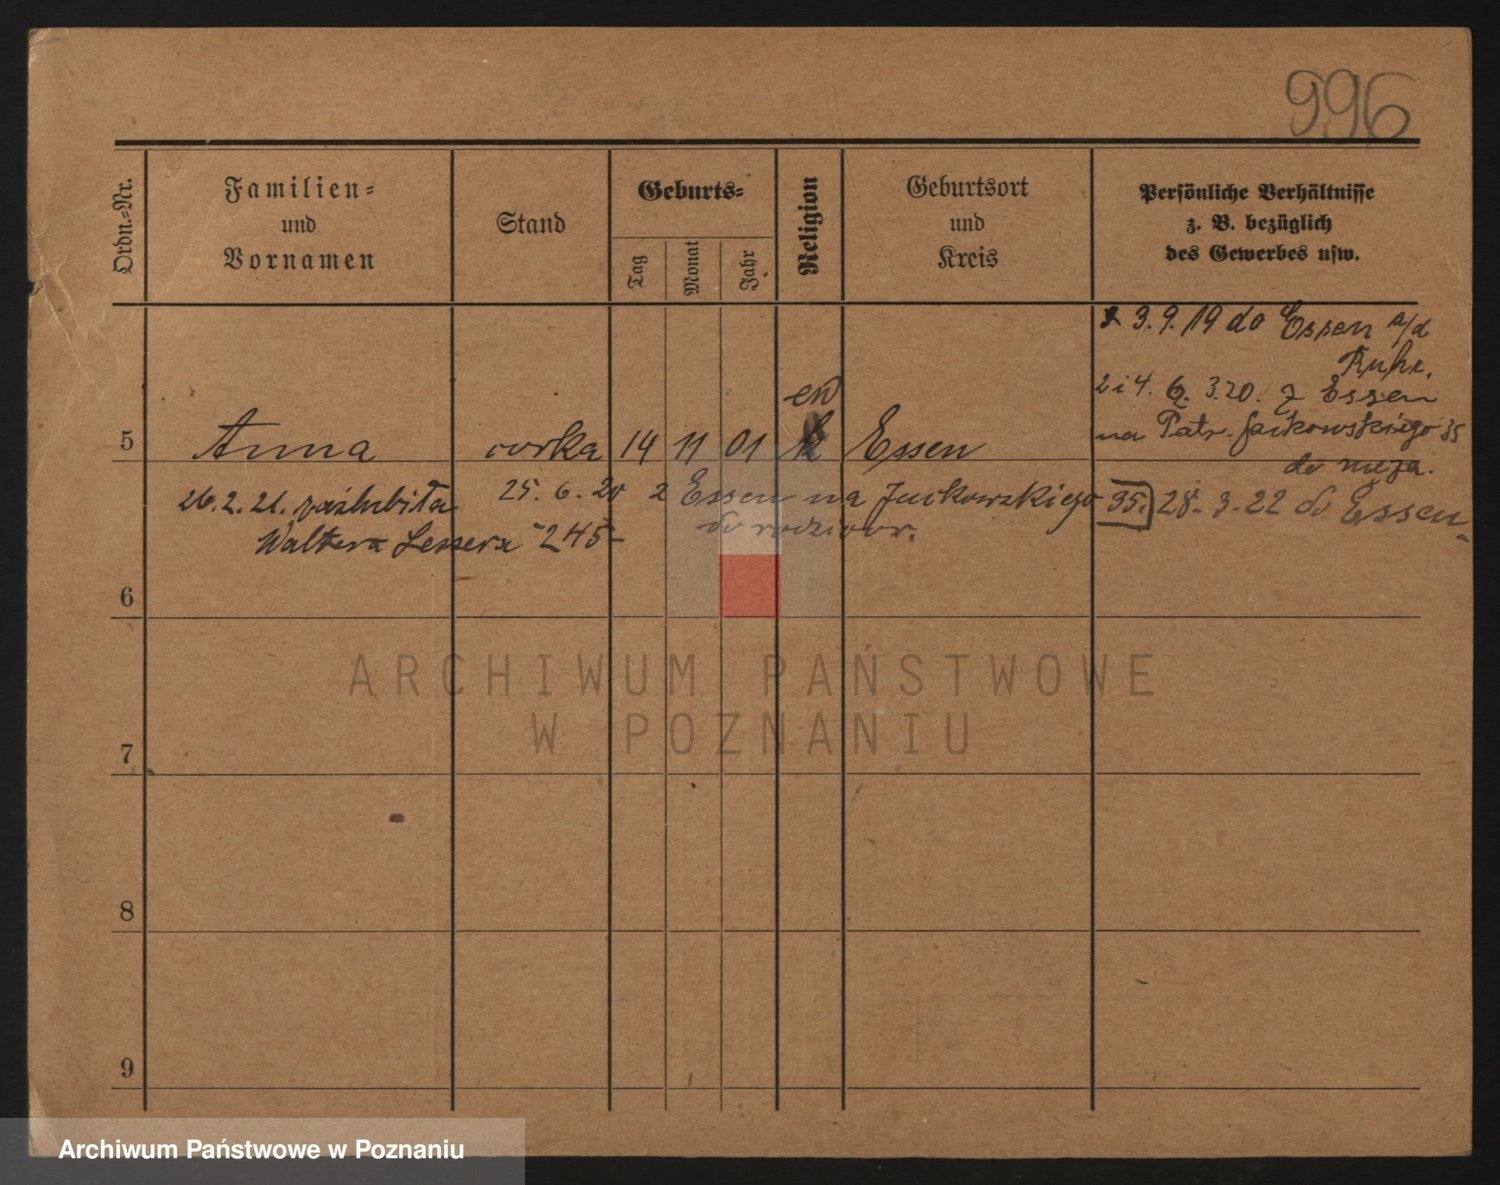 996
Ordn.=Nr.
Familien=
und
Vornamen
Stand
Geburts=
Tag
Monat
Jahr
Religion
Geburtsort
und
Kreis
Persönliche Verhältnisse
z. B. bezüglich
des Gewerbes usw.
3. 9. 19 do Essen a/d
Ruhr.
2 i 4. 6. 3.20. z Essen
na Patr. Jackowskiego 35
do męża.
5 Anna córka 14 11 01 ew Essen
25. 6. 20 z Essen na Jackowskiego 35. 28. 3. 22 do Essen
do rodziców.
26. 2. 21. zaślubiła
Waltera Lessera 245
6
7
8
9
ARCHIWUM PAŃSTWOWE
W POZNANIU
Archiwum Państwowe w Poznaniu